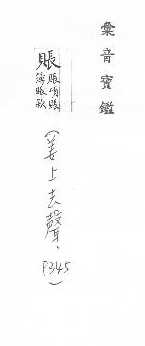 彙音寶鑑
賬
賬項賬
簿賬款
(姜上去聲，P345)